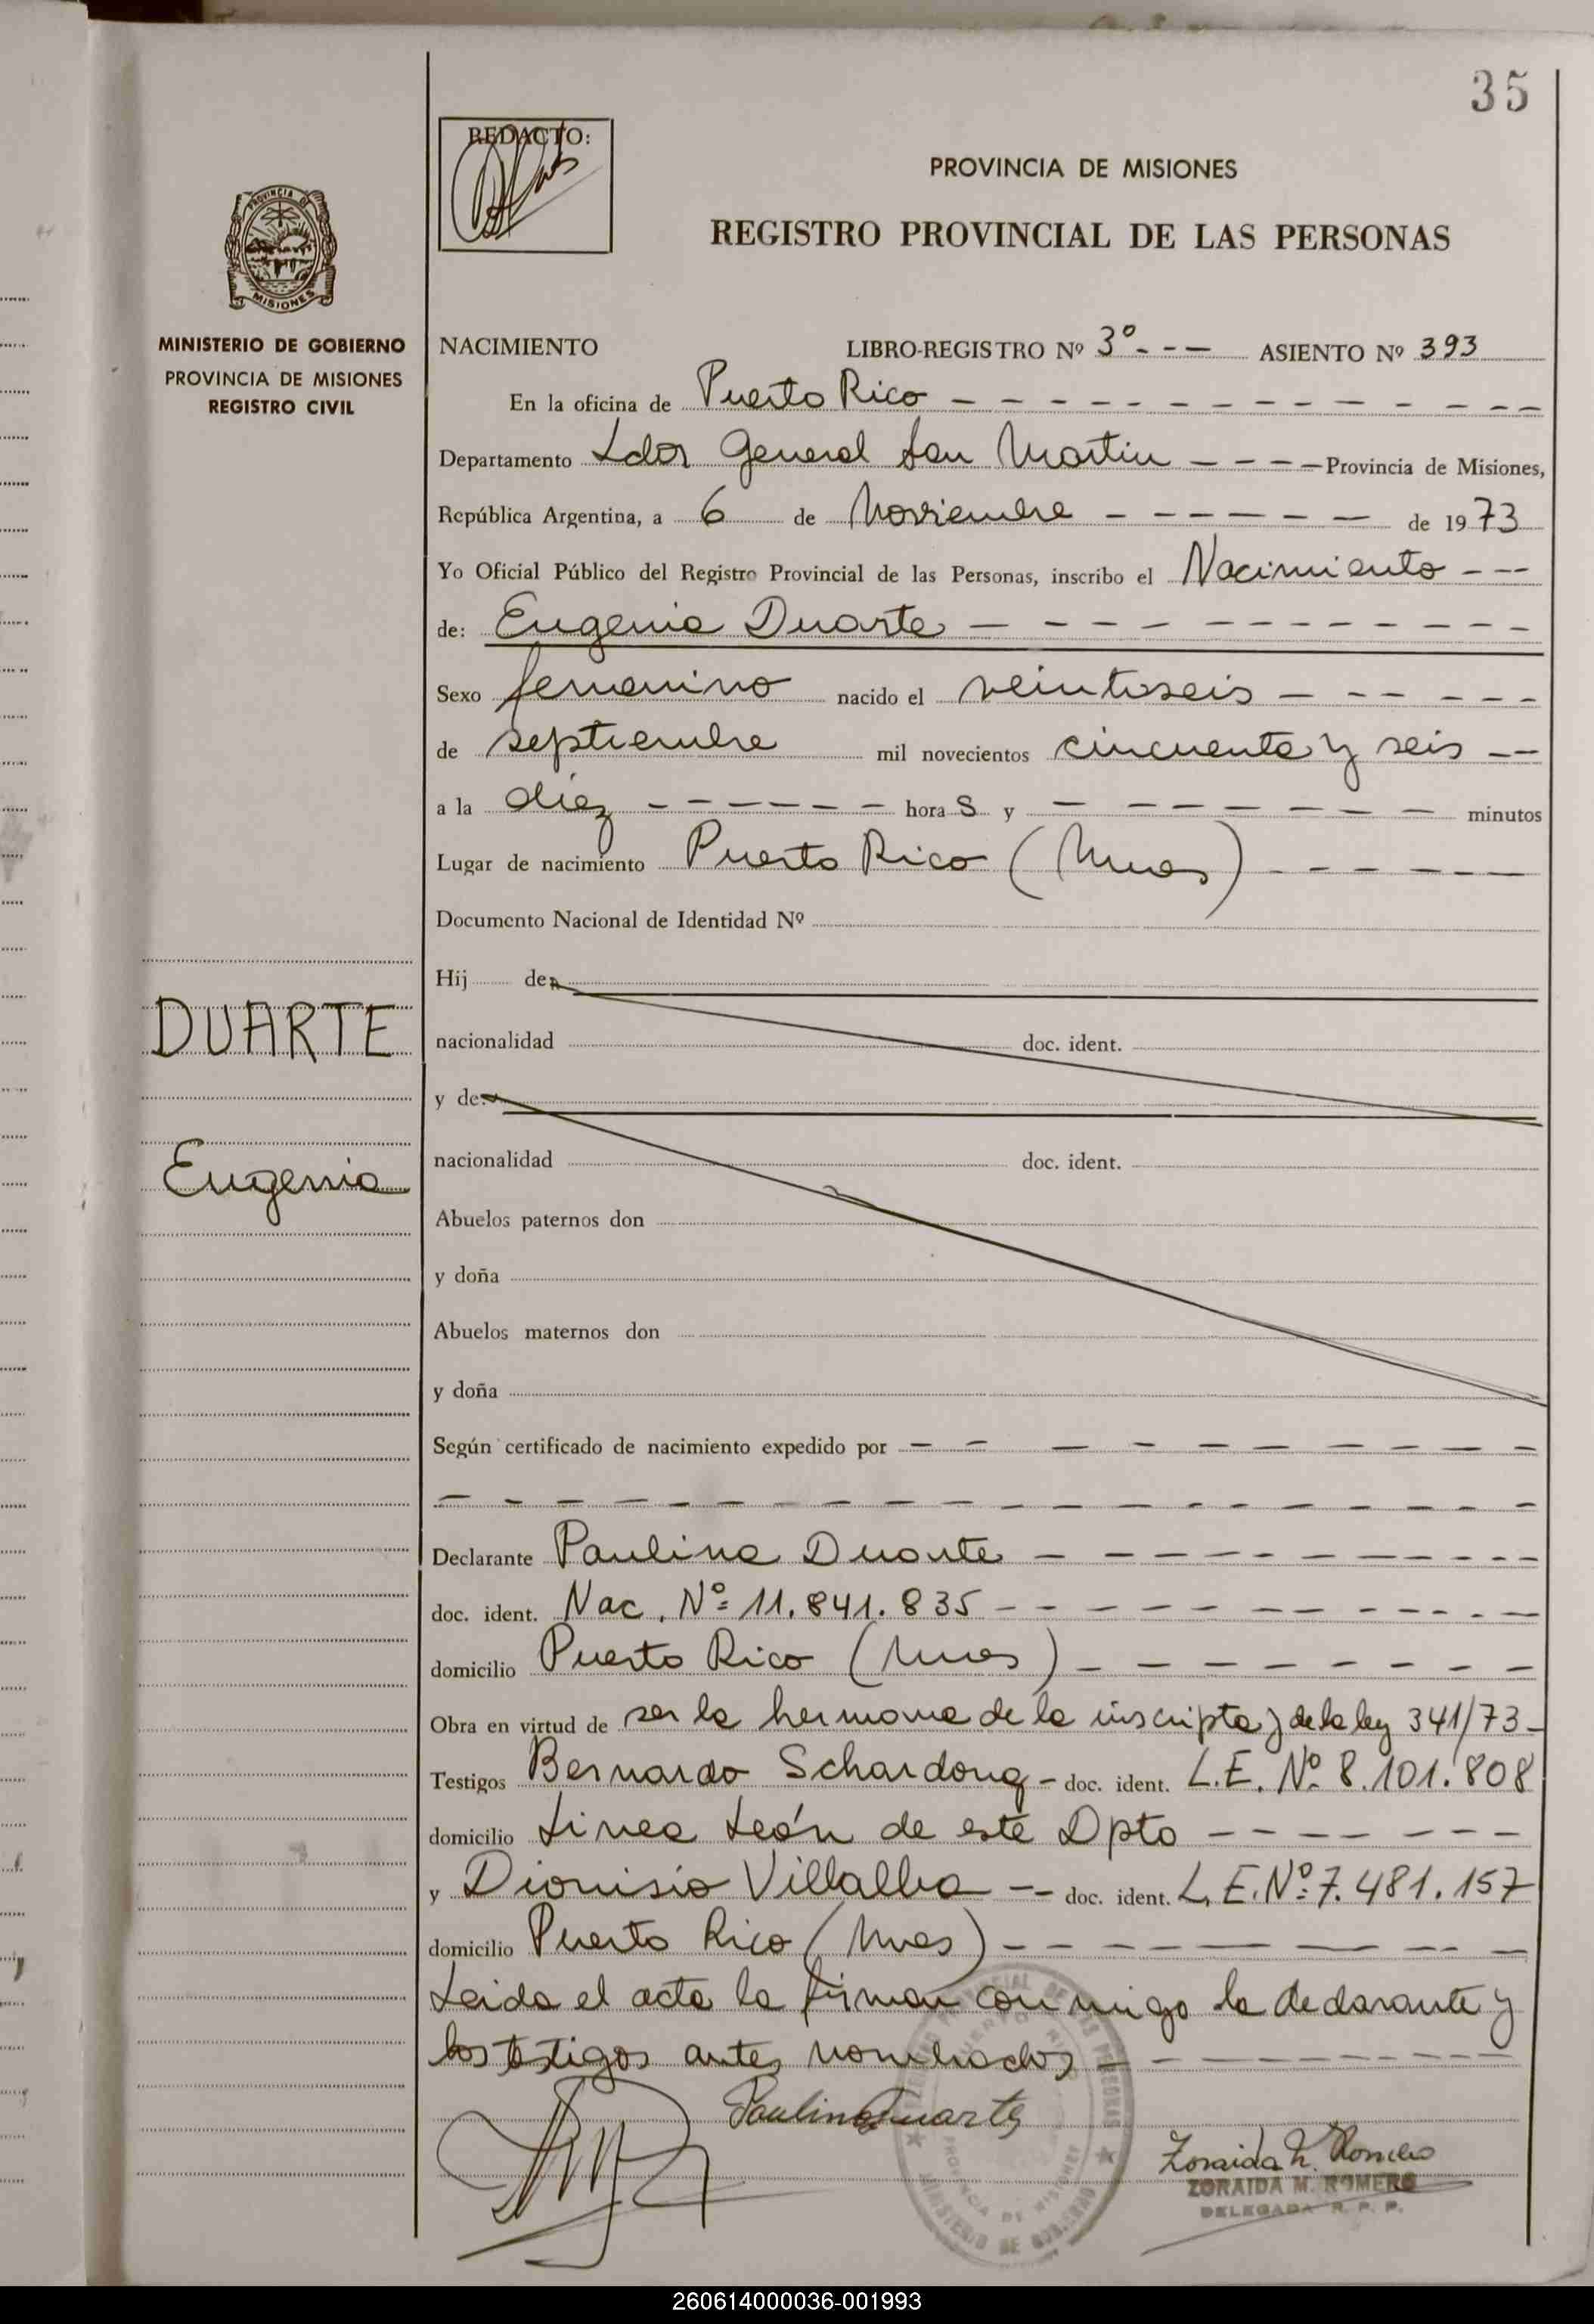 35
REDACTO:
PROVINCIA DE MISIONES
REGISTRO PROVINCIAL DE LAS PERSONAS
PROVINCIA DE
MISIONES
MINISTERIO DE GOBIERNO
PROVINCIA DE MISIONES
REGISTRO CIVIL
NACIMIENTO LIBRO-REGISTRO Nº 3º - - - ASIENTO Nº 393
En la oficina de Puerto Rico
Departamento Ldor General San Martin - - - - Provincia de Misiones,
República Argentina, a 6 de Noviembre de 1973
Yo Oficial Público del Registro Provincial de las Personas, inscribo el Nacimiento - - -
de: Eugenia Duarte
Sexo femenino nacido el veintiseis
de septiembre mil novecientos cincuenta y seis
a la diez hora s y minutos
Lugar de nacimiento Puerto Rico (Mnes)
Documento Nacional de Identidad Nº
Hij de
nacionalidad doc. ident.
y de:
nacionalidad doc. ident.
Abuelos paternos don
y doña
Abuelos maternos don
y doña
DUARTE
Eugenia
Según certificado de nacimiento expedido por
Declarante Paulina Duarte
doc. ident. Nac. Nº 11.841.835
domicilio Puerto Rico (Mnes)
Obra en virtud de ser la hermana de la inscripta y de la ley 341/73
Testigos Bernardo Schardong - doc. ident. L.E. Nº 8.101.808
domicilio Linea León de este Dpto
y Dionisio Villalba -- doc. ident. L.E. Nº 7.481.157
domicilio Puerto Rico (Mnes)
Leida el acta la firman conmigo la declarante y
los testigos antes nombrados
Paulina Duarte
Zoraida M. Romero
ZORAIDA M. ROMERO
DELEGADA R. P. P.
MINISTERIO DE GOBIERNO
PROVINCIA DE MISIONES
260614000036-001993